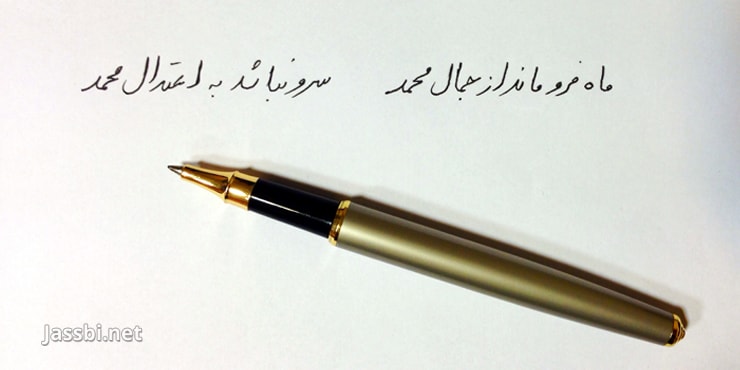 ماه فرو ماند از جمال محمد سرو نباشد به اعتدال محمد
Jassbi.net